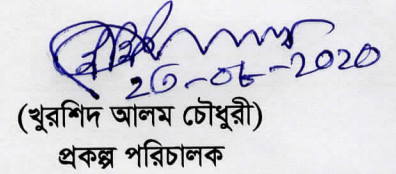 ২৩-০৮-2020
(খুরশিদ আলম চৌধুরী)
প্রকল্প পরিচালক